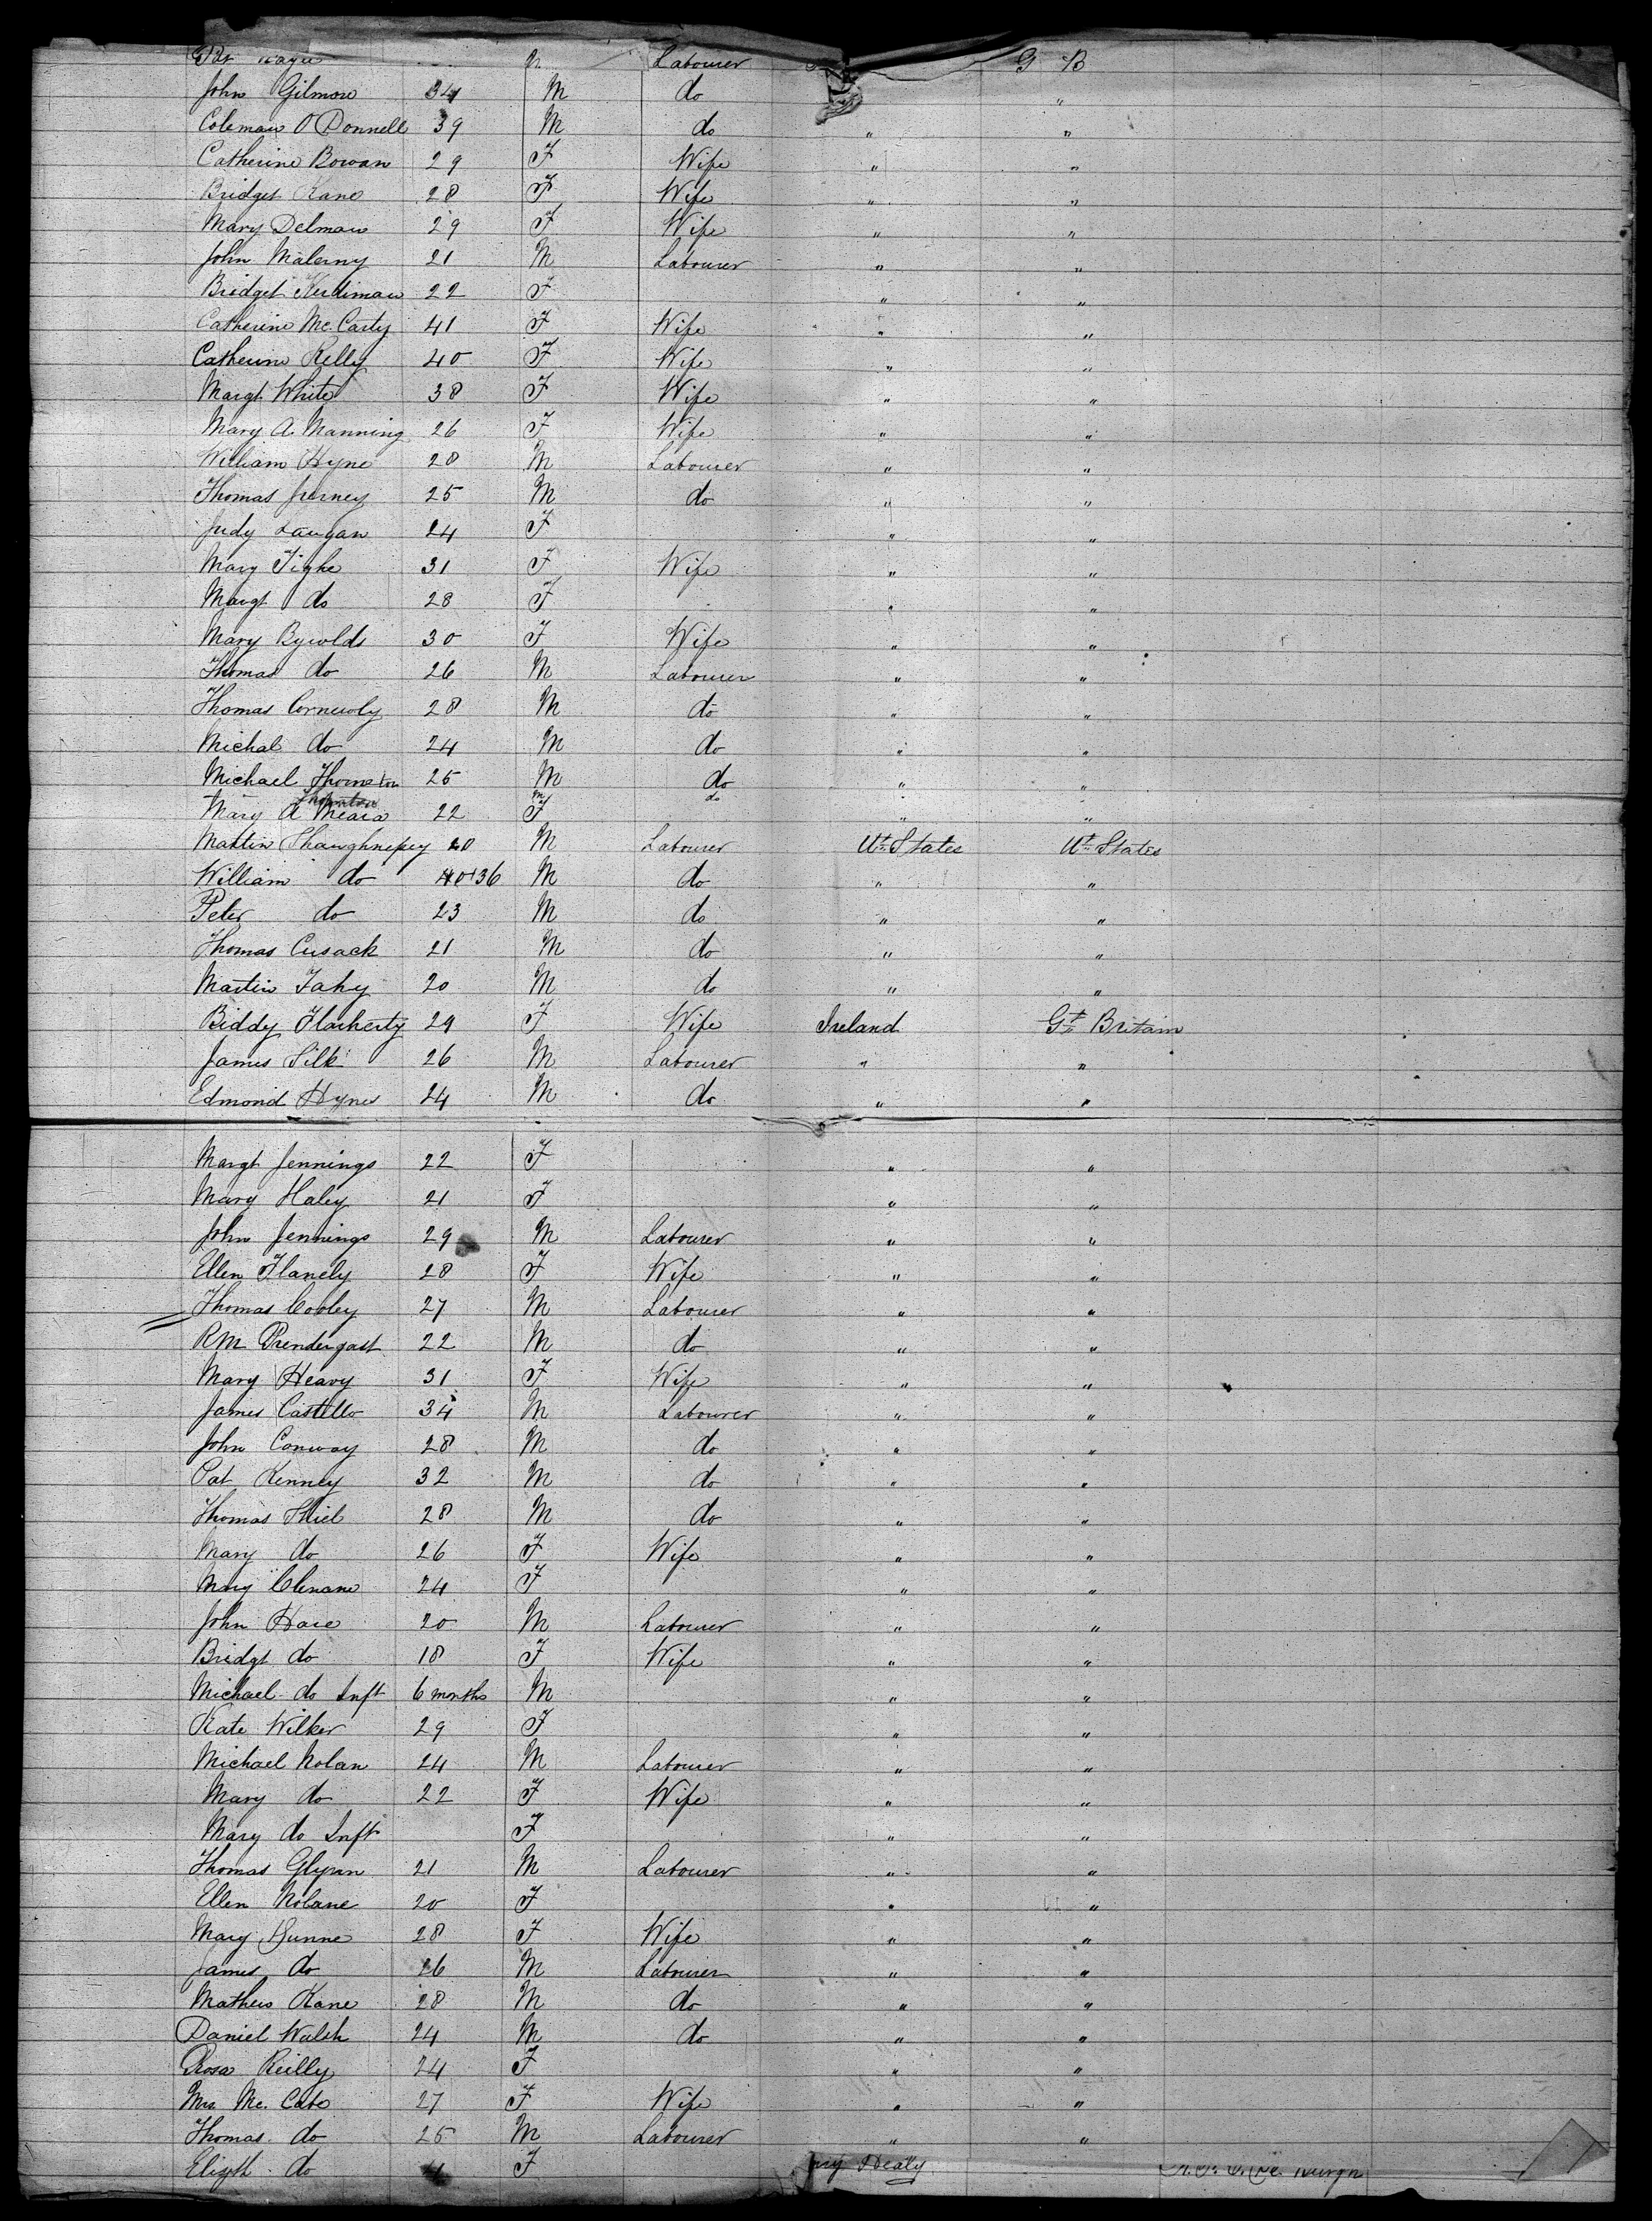 Pat M Labourer G B
John Gilmore 34 M do "
Coleman O Donnell 39 M do " "
Catherine Bowan 29 F Wife " "
Bridget Kane 28 F Wife " "
Mary Delman 29 F Wife " "
John Malerny 21 M Labourer " "
Bridget 22 F " "
Catherine Mc. Carty 41 F Wife " "
Catherine Kelly 40 F Wife " "
Margt White 38 F Wife " "
Mary A Manning 26 F Wife " "
William Hyne 28 M Labourer " "
Thomas 25 M do " "
Judy Laugan 24 F " "
Mary Tighe 31 F Wife " "
Margt do 28 F " "
Mary Bywolds 30 F Wife " "
Thomas do 26 M Labourer " "
Thomas 28 M do " "
Michal do 24 M do " "
Michael Thornton 25 M do " "
Thornton M do
Mary A Meara 22 F " "
Martin Shaughnessy 20 M Labourer Ut. States Ut. States
William do 40+36 M do " "
Peter do 23 M do " "
Thomas Cusack 21 M do " "
Martin Fahy 20 M do " "
Biddy Flarherty 29 F Wife Ireland Gt. Britain
James Silk 26 M Labourer " "
Edmond Hynes 24 M do " "
Margt Jennings 22 F " "
Mary Haley 21 F " "
John Jennings 29 M Labourer " "
Ellen Flanely 28 F Wife " "
Thomas Cooley 27 M Labourer " "
RM Prendergast 22 M do " "
Mary Heavy 31 F Wife " "
James Castello 34 M Labourer " "
John Conway 28 M do " "
Pat Kenney 32 M do " "
Thomas Shiel 28 M do " "
Mary do 26 F Wife " "
Mary Clenane 24 F " "
John Hare 20 M Labourer " "
Bridgt do 18 F Wife " "
Michael do Inft 6 months M " "
Kate Wilker 29 F " "
Michael Nolan 24 M Labourer " "
Mary do 22 F Wife " "
Mary do Inft F " "
Thomas Glynn 21 M Labourer " "
Ellen Nolane 20 F " "
Mary Dunne 28 F Wife " "
James do 26 M Labourer " "
Mathew Kane 28 M do " "
Daniel Walsh 24 M do " "
Rosa Reilly 24 F " "
Mrs Mc. Cabe 27 F Wife " "
Thomas do 25 M Labourer " "
Elizth do 4 F Healy